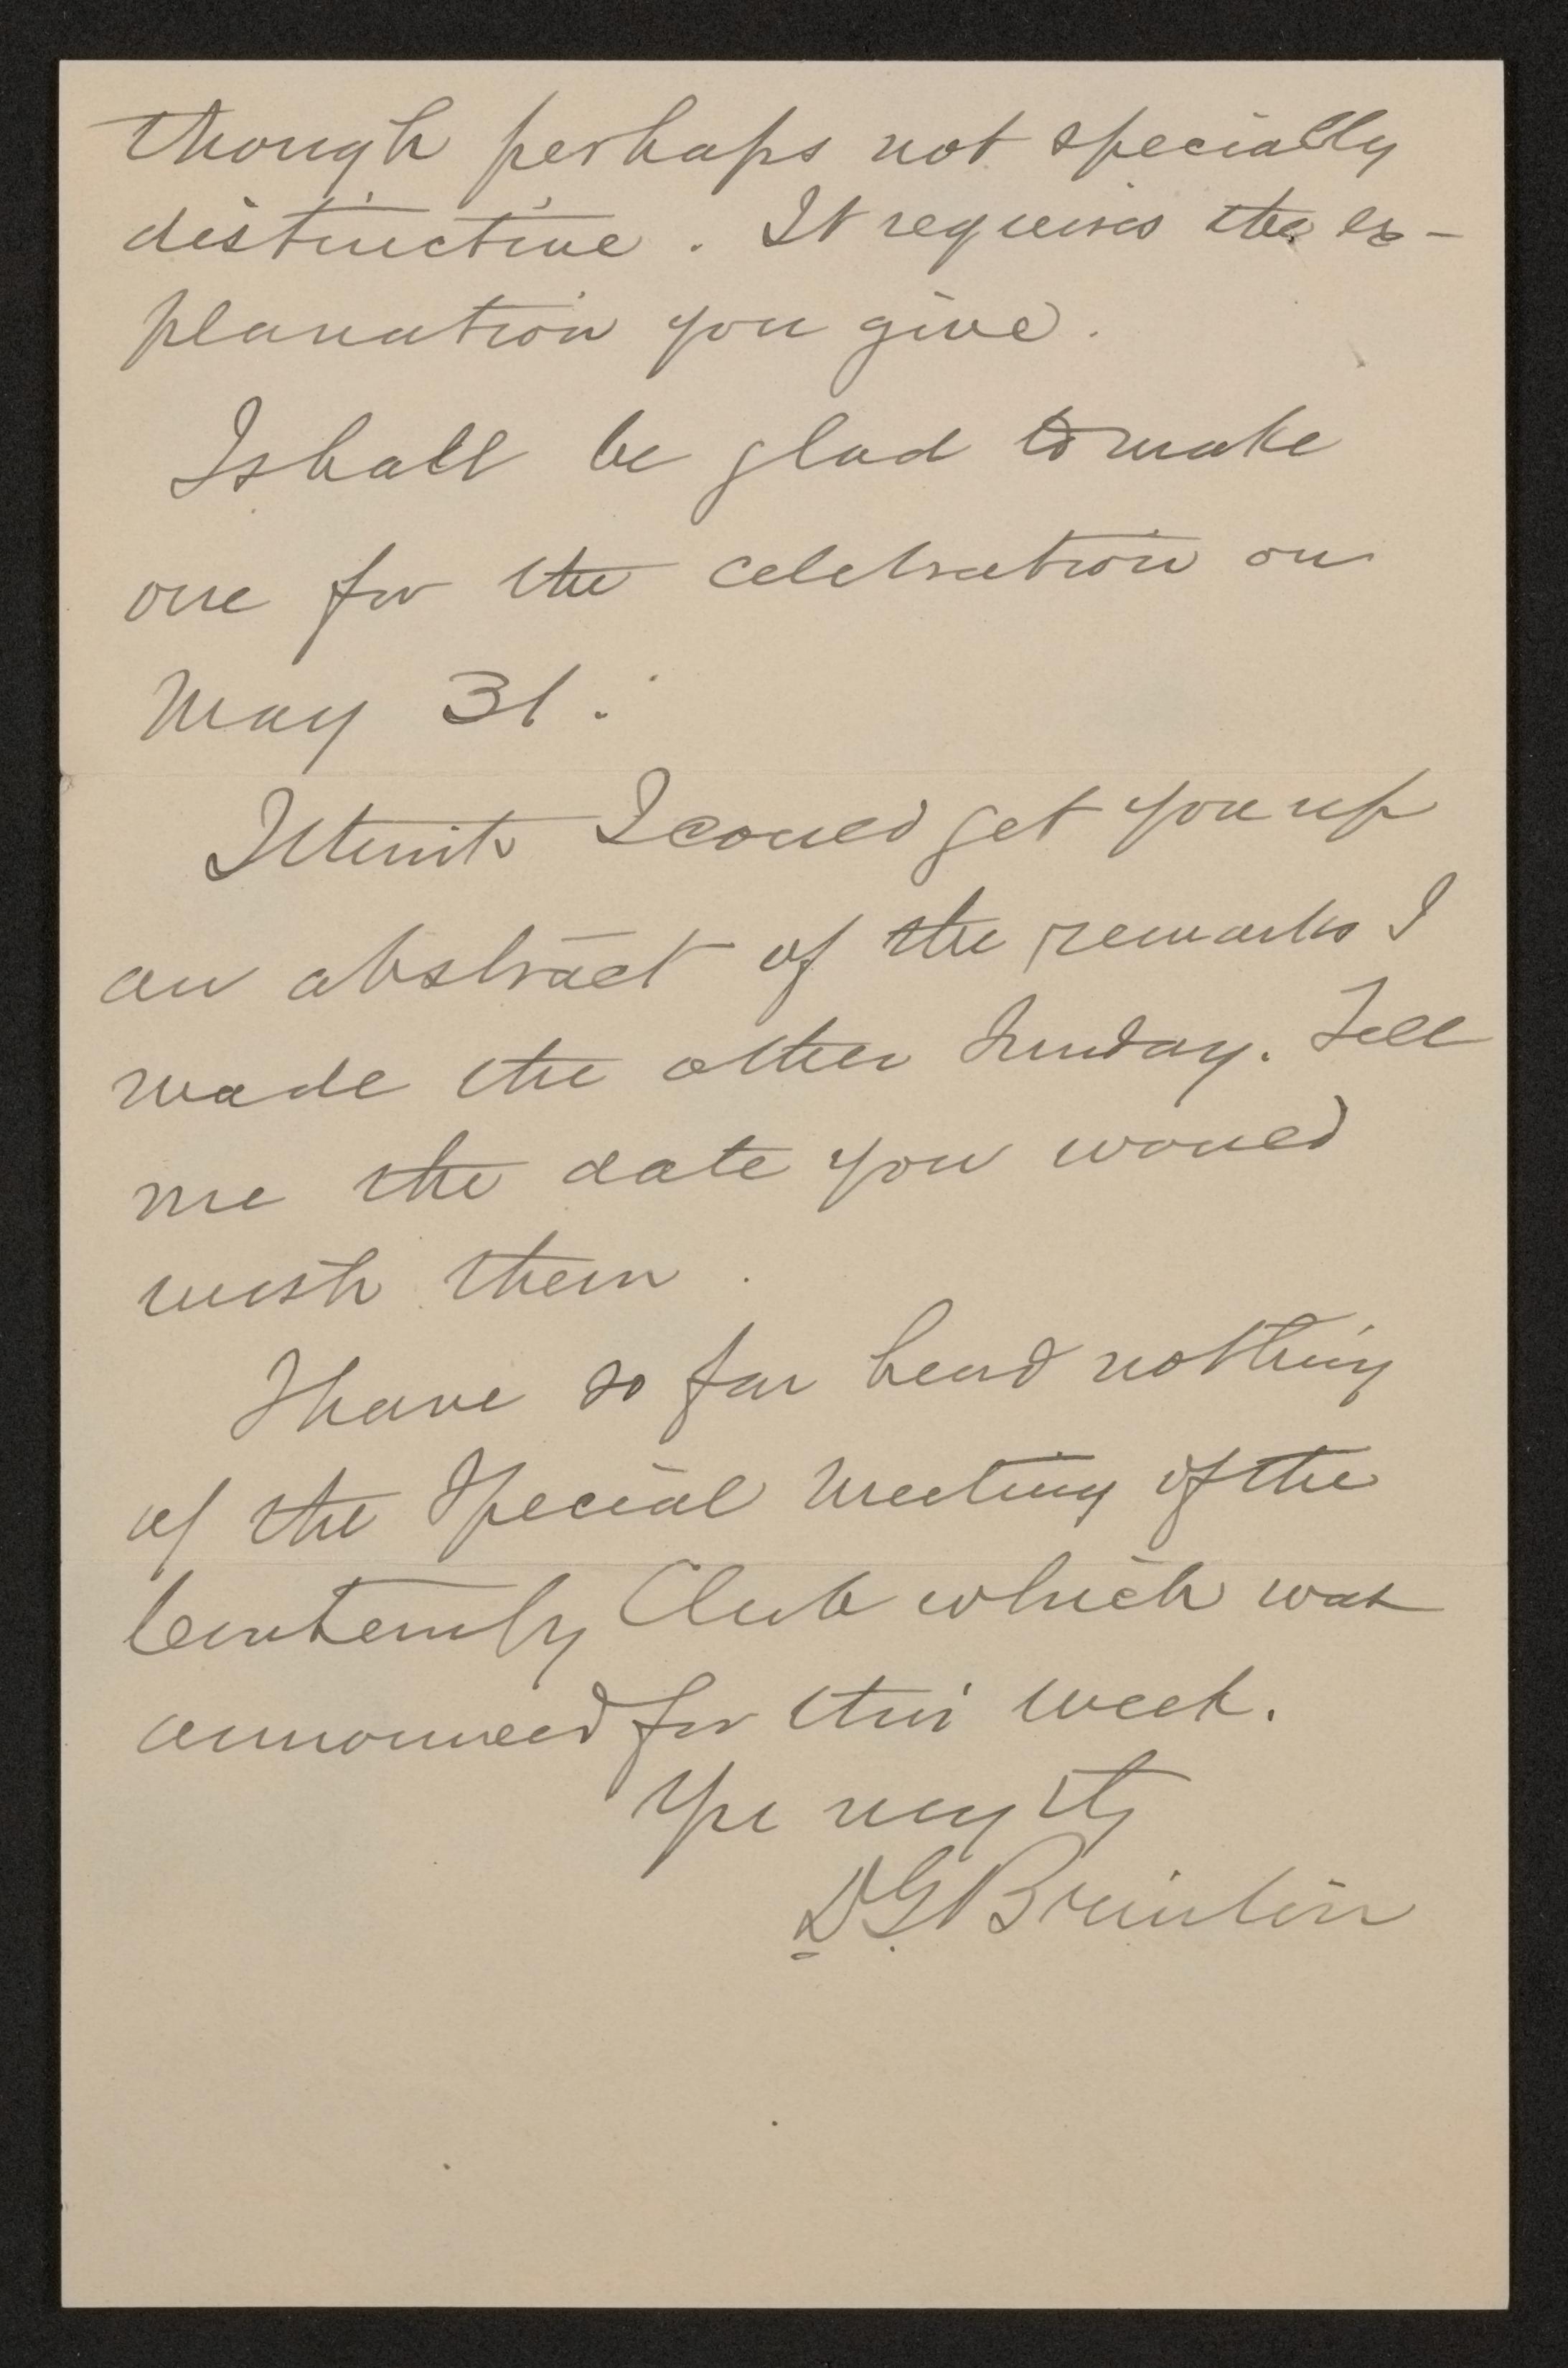 though perhaps not specially
distinctive. It requires the ex-
planation you give.
I shall be glad to make
one for the celebration on
May 31.
I think I could get you up
an abstract of the remarks I
made the other Sunday. Tell
me the date you would
wish them.
I have so far heard nothing
of the Special Meeting of the
Contemp'y Club which was
announced for this week.
Yrs very ty
DG Brinton